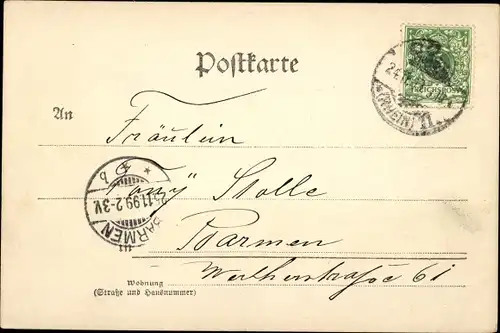 Postkarte
An
Fräulein
Tony Stolle
Barmen
Wertherstraße 61
Wohnung
(Straße und Hausnummer)
25.11.99.2-3V.
BARMEN